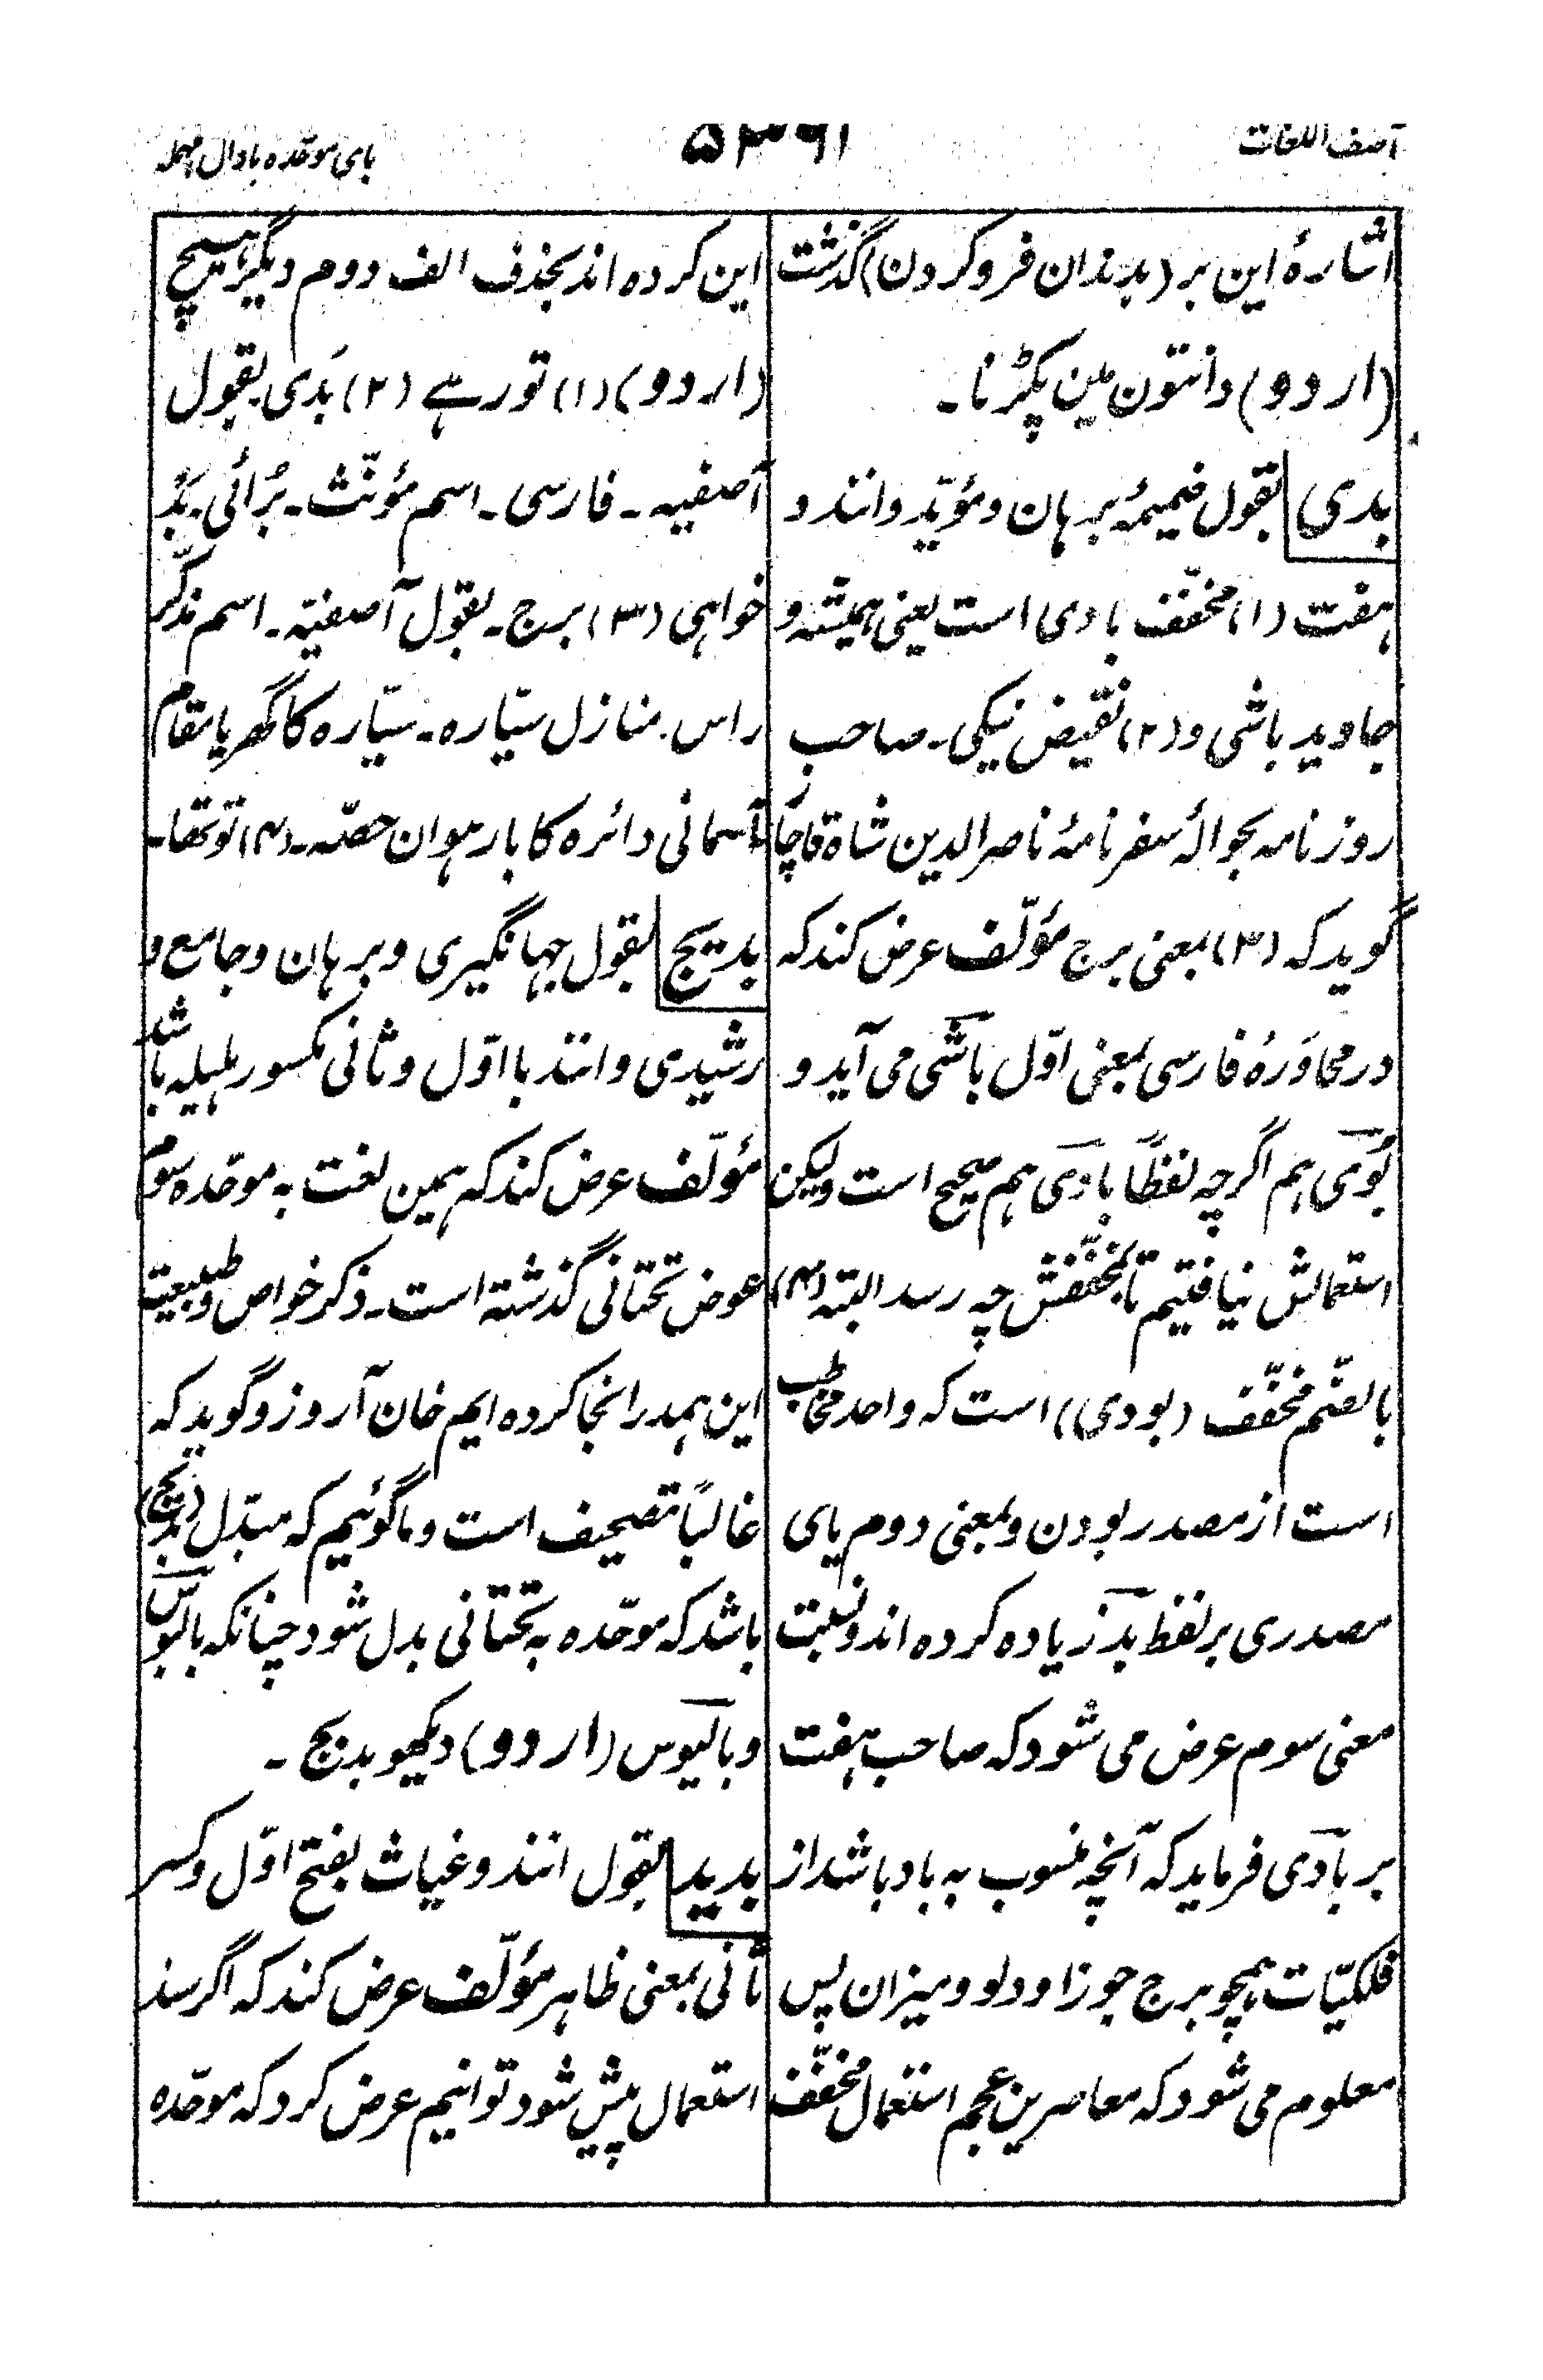 آصف اللغات
۵۳۶۱
بای موحّده با دال مهمله
اشارۀ این بر (بدندان فروکردن) گذشت
(اردو) دانتون مین پکڑنا۔
بدی بقول ضمیمۂ برہان و مؤیّد و انند و
ہفت (۱) مخفّف بادی است یعنی ہمیشہ و
جاوید باشی و (۲) نقیض نیکی۔ صاحب
روزنامہ بحوالۂ سفرنامۂ ناصرالدین شاہ قاچار
گوید کہ (۳) بمعنی برج مؤلّف عرض کند کہ
در محاورۂ فارسی بمعنی اوّل باشی می آید و
بُوَی ہم اگرچہ لفظاً بادی ہم صحیح است ولیکن
استعمالش نیافتیم تا بمخفّفش چہ رسد البتہ (۴)
بالضّم مخفّف (بودی) است کہ واحد مخاطب
است از مصدر بودن و بمعنی دوم یای
مصدری بر لفظ بد زیادہ کردہ اند و نسبت
معنی سوم عرض می شود کہ صاحب ہفت
بر بادی فرماید کہ آنچہ منسوب بہ باد باشد از
فلکیّات ہمچو برج جوزا و دلو و میزان پس
معلوم می شود کہ معاصرین عجم استعمال مخفّف
این کردہ اند بحذف الف دوم دیگر ہیچ
(اردو) (۱) تو رہے (۲) بَدی بقول
آصفیہ۔ فارسی۔ اسم مؤنّث۔ بُرائی۔ بَد
خواہی (۳) برج۔ بقول آصفیّہ۔ اسم مذکّر
راس۔ منازل سیّارہ۔ سیّارہ کا گھر یا مقام
آسمانی دائرہ کا بارہوان حصّہ۔ (۴) تو تھا۔
بدیج بقول جہانگیری و برہان و جامع و
رشیدی و انند با اوّل و ثانی مکسور ہلیلہ باشد
مؤلّف عرض کند کہ ہمین لغت بہ موحّدہ سوم
عوض تحتانی گذشتہ است۔ ذکر خواص و طبیعت
این ہمدرانجا کردہ ایم خان آرزو گوید کہ
غالباً تصحیف است و ما گوئیم کہ مبدّل (بدبج)
باشد کہ موحّدہ بہ تحتانی بدل شود چنانکہ بالبوس
و بالیوس (اردو) دیکھو بدبج۔
بدید بقول انند و غیاث بفتح اوّل و کسر
ثانی بمعنی ظاہر مؤلّف عرض کند کہ اگر سند
استعمال پیش شود توانیم عرض کرد کہ موحّدہ